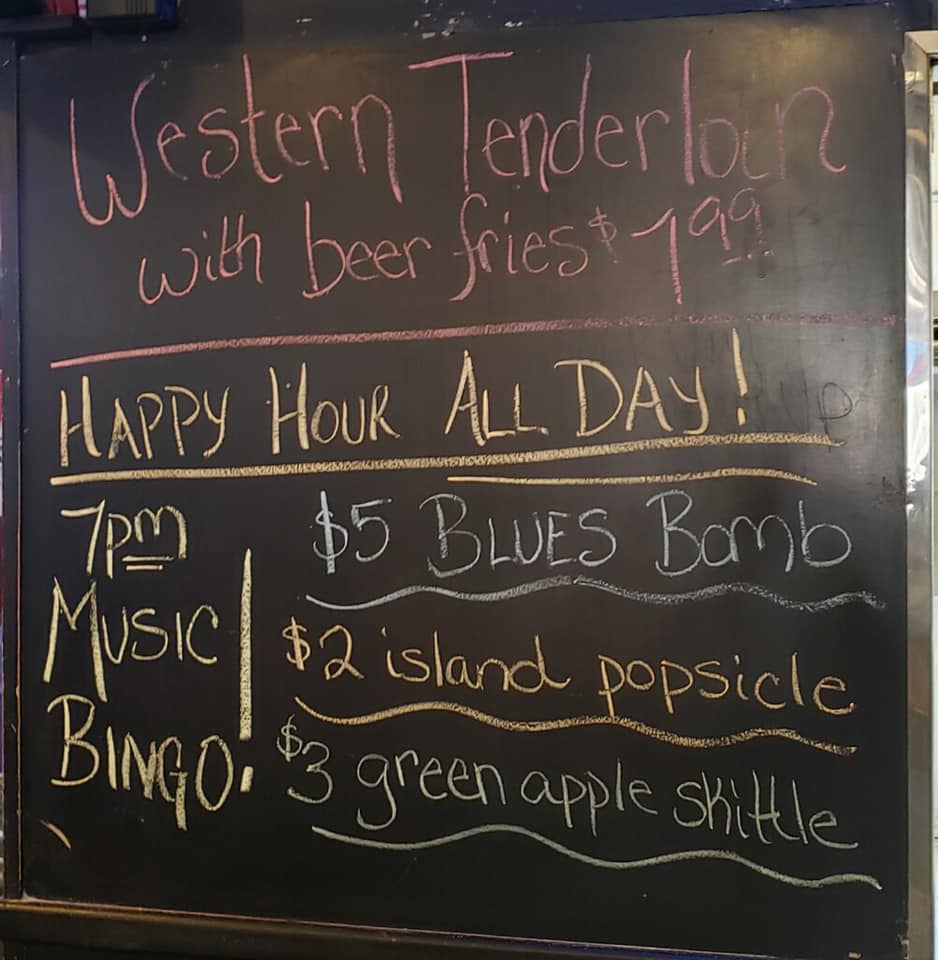 Western Tenderloin
with beer fries $7.99
HAPPY HOUR ALL DAY!
7pm
MUSIC
BINGO!
$5 BLUES Bomb
$2 island popsicle
$3 green apple skittle